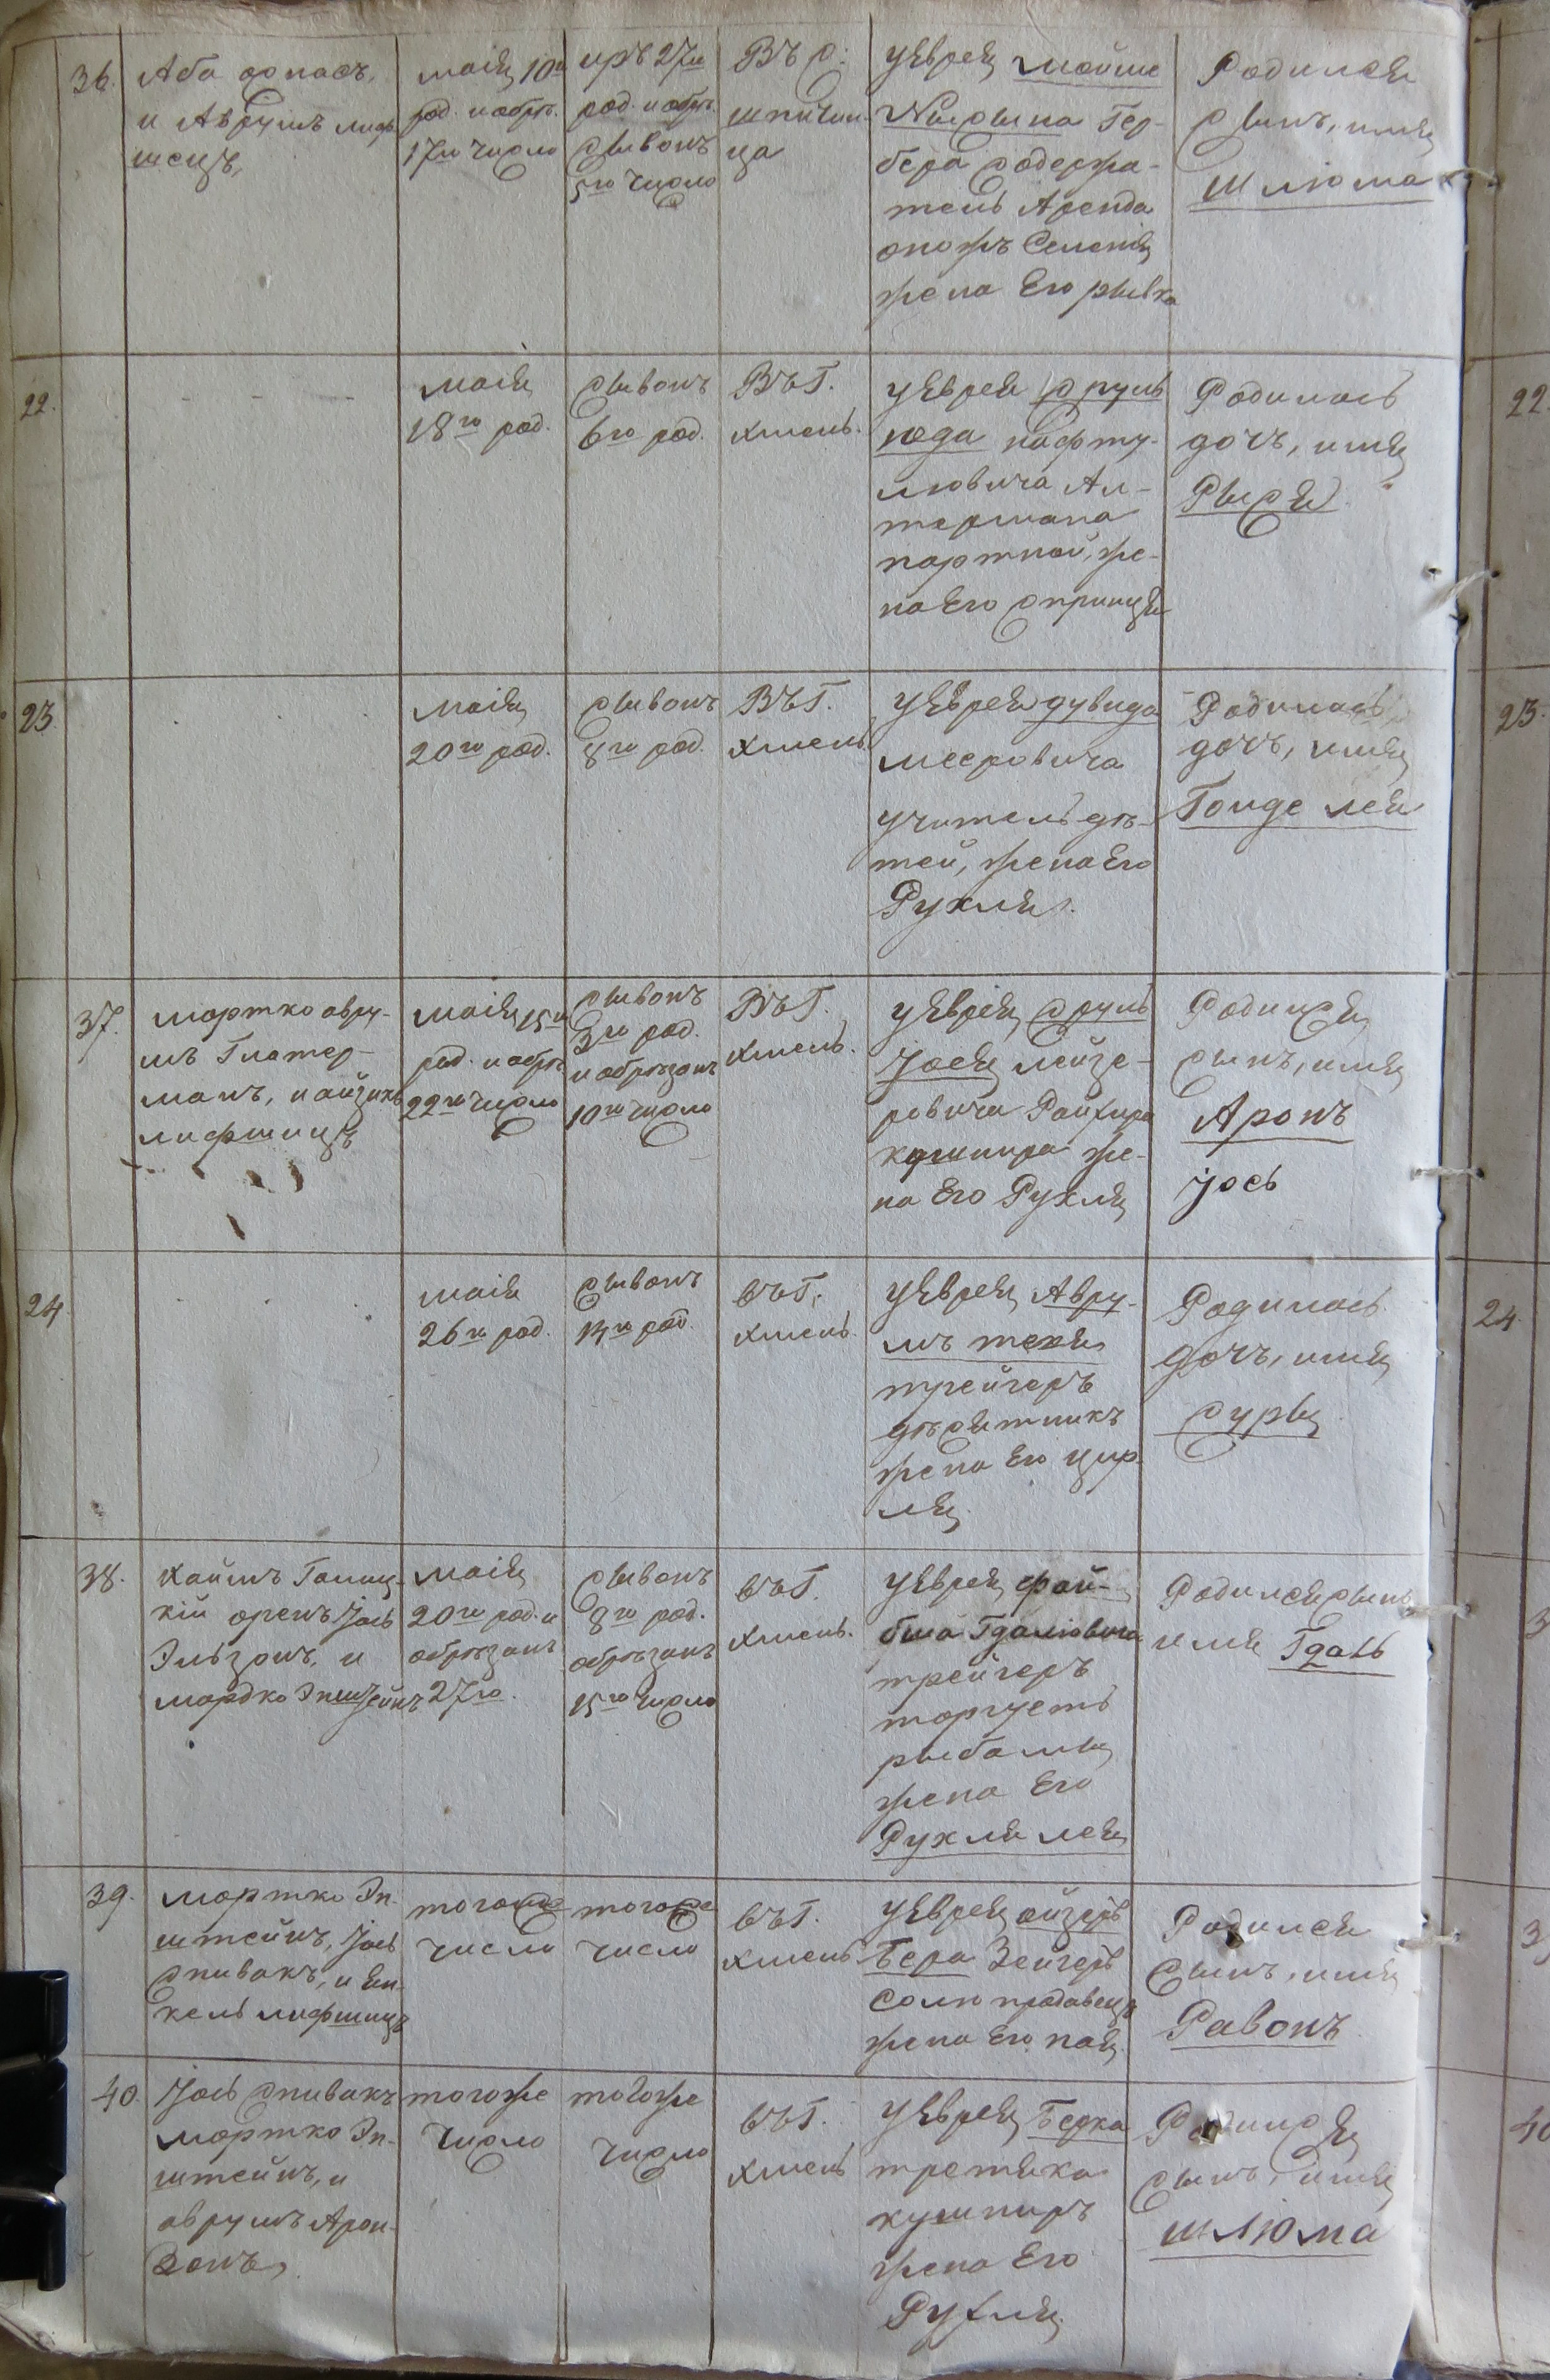 36.
Аба
и Аврумъ лиф-
шецъ,
маія 10го
род. и обрѣ.
17го число
иръ 27го
род. и обрѣ.
сывонъ
5го число
Въ с:
шпичин-
ца
У Еврея Мойше
Гер-
бера содержа-
тель Аренда
жена Его рывка
Родился
сынъ, имя
Шлюма
22.
маія
18го род.
сывонъ
6го род.
ВъГ.
хмель.
У Еврея Сруль
юда нафту-
ловича Ал-
термана
портной, же-
на Его спринця
Родилась
дочъ, имя
Рыся
23
маія
20го род.
сывонъ
8го род.
ВъГ.
хмель
У Еврея дувида
мееровича
учитель дѣ-
тей, жена Его
Рухля.
Родилась
дочъ, имя
Гонде лея
37.
мортко авру-
мъ Глатер-
манъ, и айзикъ
лифшицъ
маія 15го
род. и обрѣ.
22го число
сывонъ
3го род.
и обрѣзанъ
10го число
ВъГ.
хмель.
У Еврея Сруль
Іося лейзе-
ровича
кушнира же-
на Его Рухля
Родился
сынъ, имя
Аронъ
Іось
24.
маія
26го род.
сывонъ
14го род.
въГ.
хмель.
У Еврея Авру-
мъ
трейгеръ
десятникъ
жена Его цир-
ля
Родилась
дочъ, имя
суры
38.
Хаимъ Галиц-
кій оренъ Іось
Эльзонъ, и
мордко Эпштейнъ
маія
20го род. и
обрѣзанъ
27го.
сывонъ
8го род.
обрѣзанъ
15го число
въГ.
хмель.
У Еврея фай-
биша Гдалювича
трейгеръ
торгуетъ
рыбамы
жена Его
Рухля лея
Родился сынъ
имя Гдаль
39.
мортко Эп-
штейнъ, Іось
спивакъ, и Ян-
кель лифшицъ
тогоже
число
тогоже
число
въГ.
хмель
У Еврея айзеръ
Бера Зейгеръ
солю продавецъ
жена Его
Родился
сынъ, имя
Равонъ
40.
Іось спивакъ
мортко Эп-
штейнъ, и
аврумъ Арон-
зонъ,
тогоже
число
тогоже
число
въГ.
хмель
У Еврея Берка
третяка
кушниръ
жена Его
Рухля
Родился
сынъ, имя
шлюма
22.
23.
24.
40